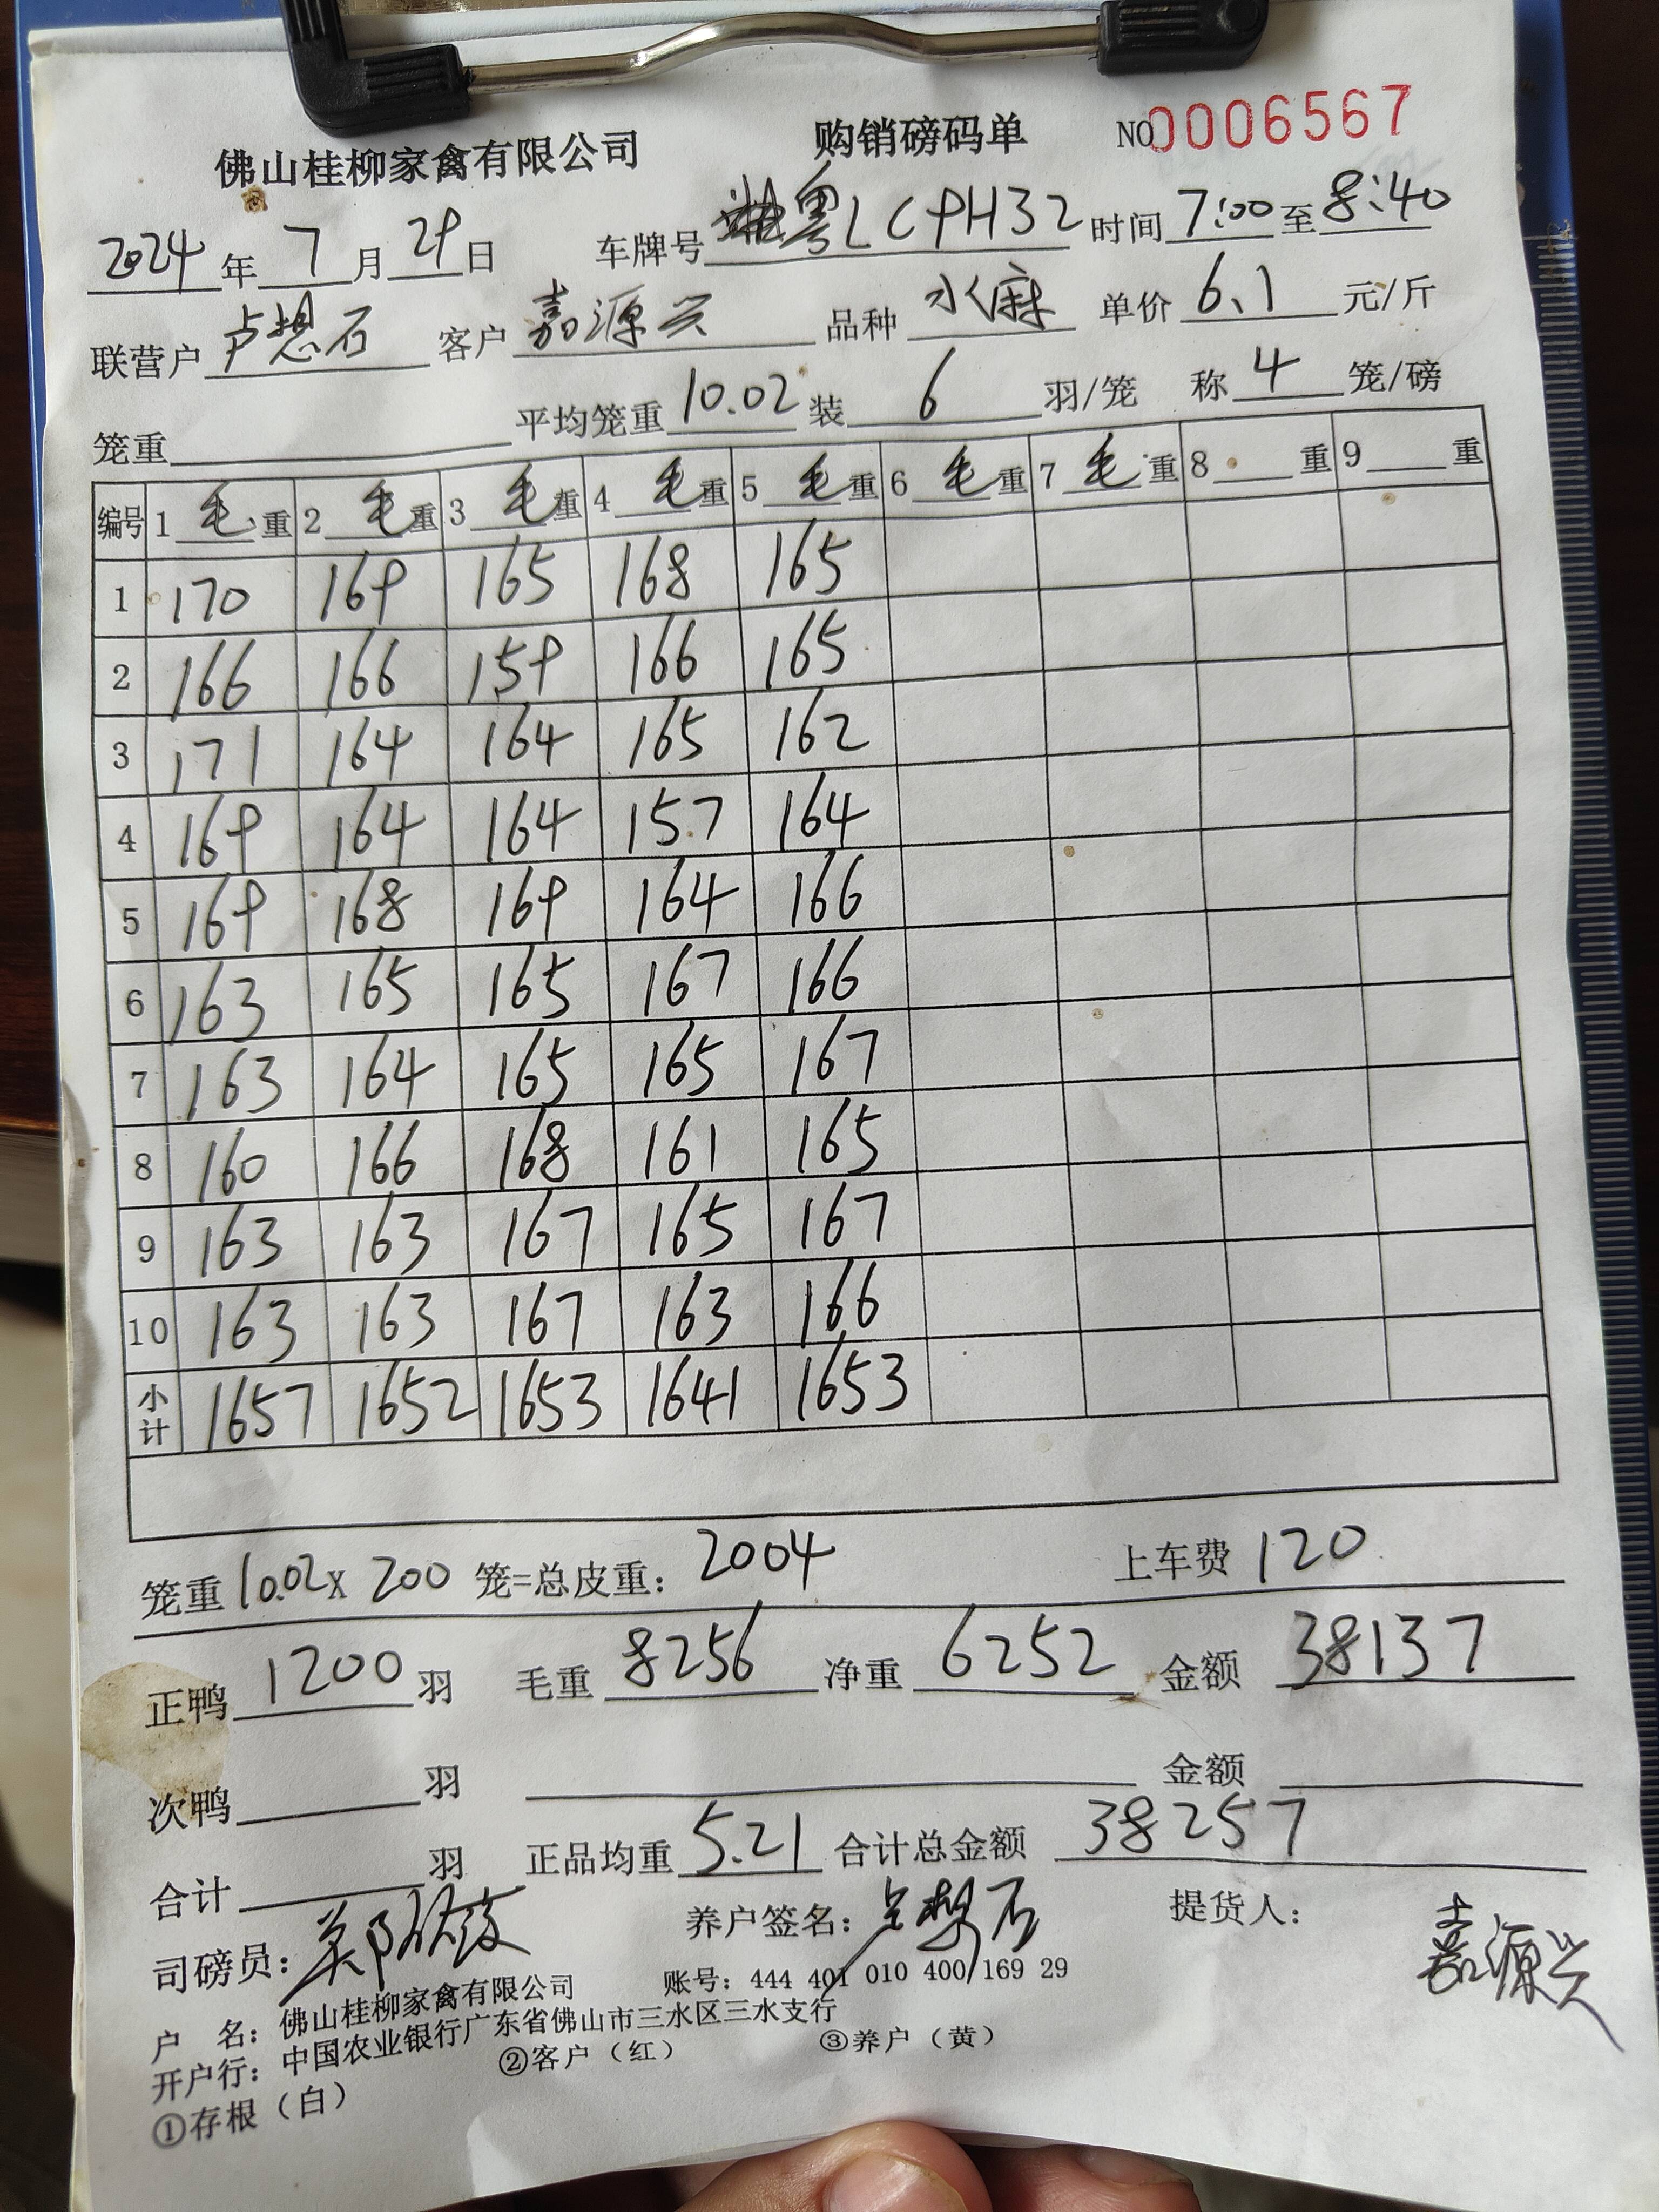 佛山桂柳家禽有限公司 购销磅码单 NO 0006567
2024 年 7 月 29 日 车牌号 粤LC9H32 时间 7:00 至 8:40
联营户 卢想石 客户 嘉源兴 品种 水麻 单价 6.1 元/斤
笼重 平均笼重 10.02 装 6 羽/笼 称 4 笼/磅
编号 1 毛 重 2 毛 重 3 毛 重 4 毛 重 5 毛 重 6 毛 重 7 毛 重 8 重 9 重
1 170 169 165 168 165
2 166 166 159 166 165
3 171 164 164 165 162
4 169 164 164 157 164
5 169 168 169 164 166
6 163 165 165 167 166
7 163 164 165 165 167
8 160 166 168 161 165
9 163 163 167 165 167
10 163 163 167 163 166
小计 1657 1652 1653 1641 1653
笼重 10.02 X 200 笼=总皮重: 2004 上车费 120
正鸭 1200 羽 毛重 8256 净重 6252 金额 38137
次鸭 羽 金额
合计 羽 正品均重 5.21 合计总金额 38257
司磅员: 养户签名: 卢想石 提货人: 嘉源兴
户 名: 佛山桂柳家禽有限公司 账号: 444 401 010 400 169 29
开户行: 中国农业银行广东省佛山市三水区三水支行
①存根（白） ②客户（红） ③养户（黄）